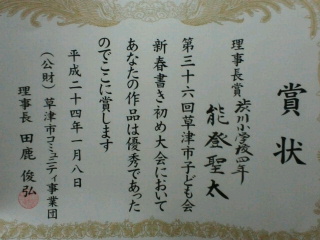 賞状
理事長賞 渋川小学校四年
能登聖太
第三十六回草津市子ども会
新春書き初め大会において
あなたの作品は優秀であった
のでここに賞します
平成二十四年一月八日
(公財)草津市コミュニティ事業団
理事長 田鹿俊弘